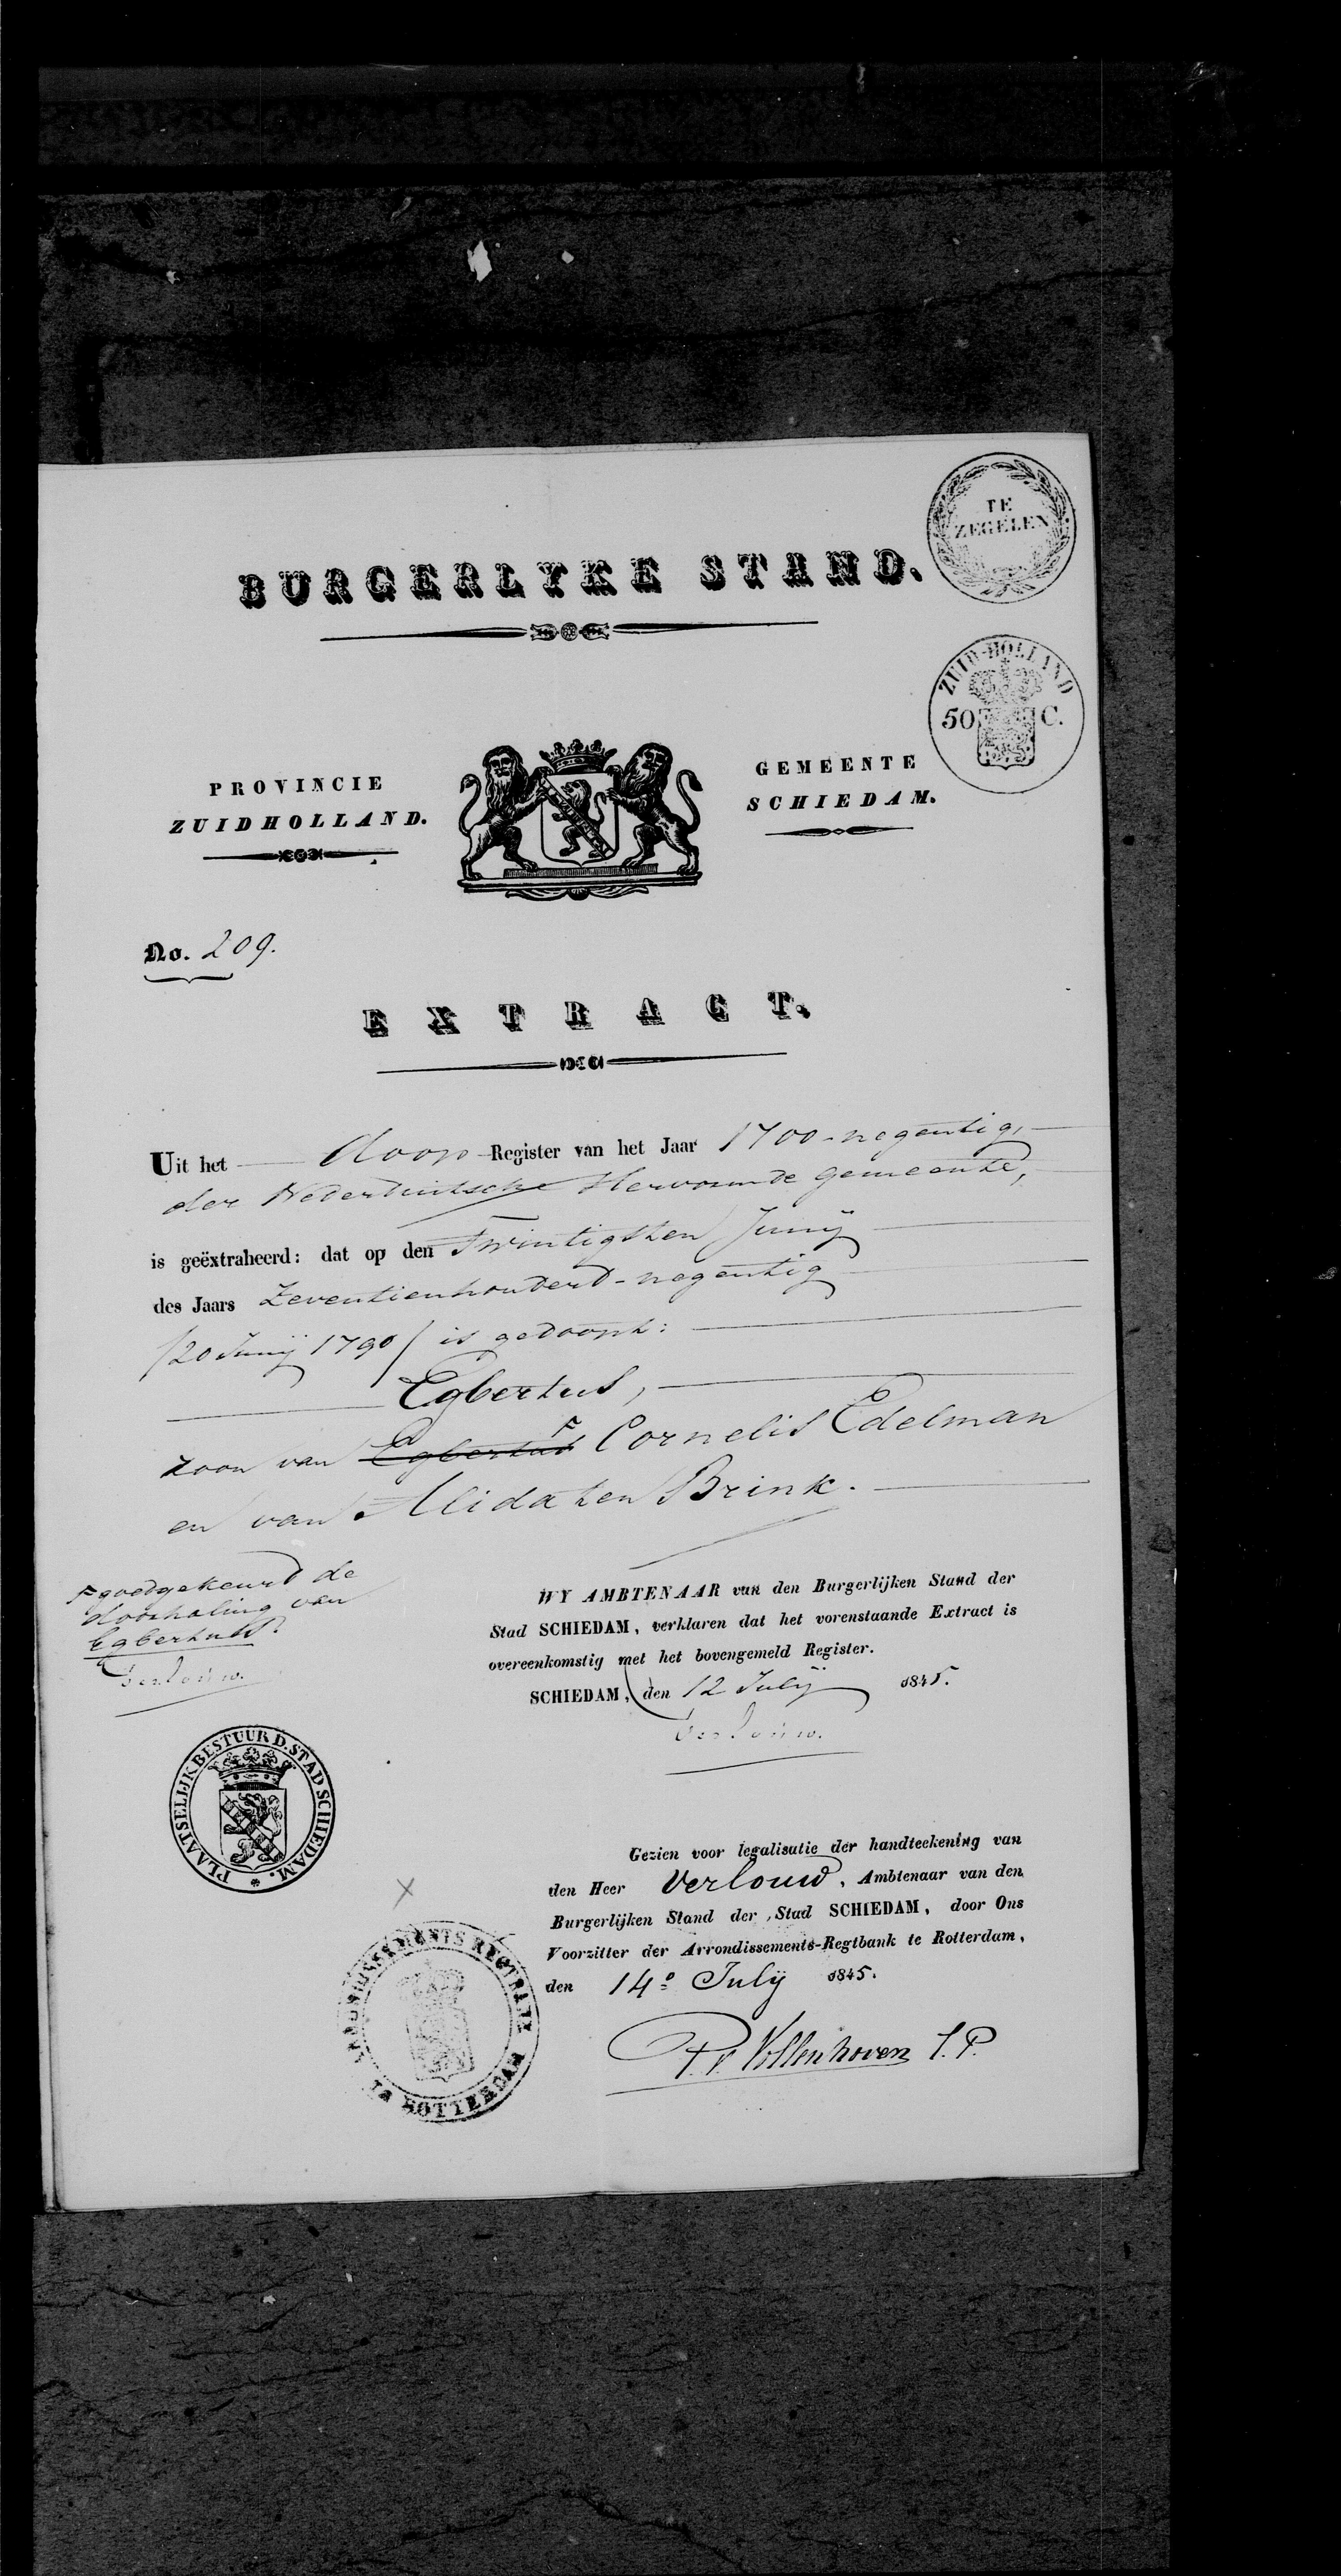 TE
ZEGELEN
BURGERLYKE STAND.
ZUID-HOLLAND
50 C.
PROVINCIE
ZUIDHOLLAND.
GEMEENTE
SCHIEDAM.
No. 209.
EXTRACT.
Uit het doop-Register van het Jaar 1700-negentig,
der Nederduitsche Hervormde Gemeente,
is geëxtraheerd: dat op den Twintigsten Junij
des Jaars Zeventienhonderd-negentig
/20 Junij 1790/ is gedoopt:
Egbertus,
zoon van Egbertus Cornelis Edelman
en van Alida ten Brink.
goedgekeurd de
doorhaling van
Egbertus.
Verlouw.
WY AMBTENAAR van den Burgerlijken Stand der
Stad SCHIEDAM, verklaren dat het vorenstaande Extract is
overeenkomstig met het bovengemeld Register.
SCHIEDAM, den 12 Julij 1845.
Verlouw.
PLAATSELIJK BESTUUR D. STAD SCHIEDAM.
Gezien voor legalisatie der handteekening van
den Heer Verlouw, Ambtenaar van den
Burgerlijken Stand der Stad SCHIEDAM, door Ons
Voorzitter der Arrondissements-Regtbank te Rotterdam,
den 14o July 1845.
ARRONDISSEMENTS REGTBANK TE ROTTERDAM
P. v. Vollenhoven